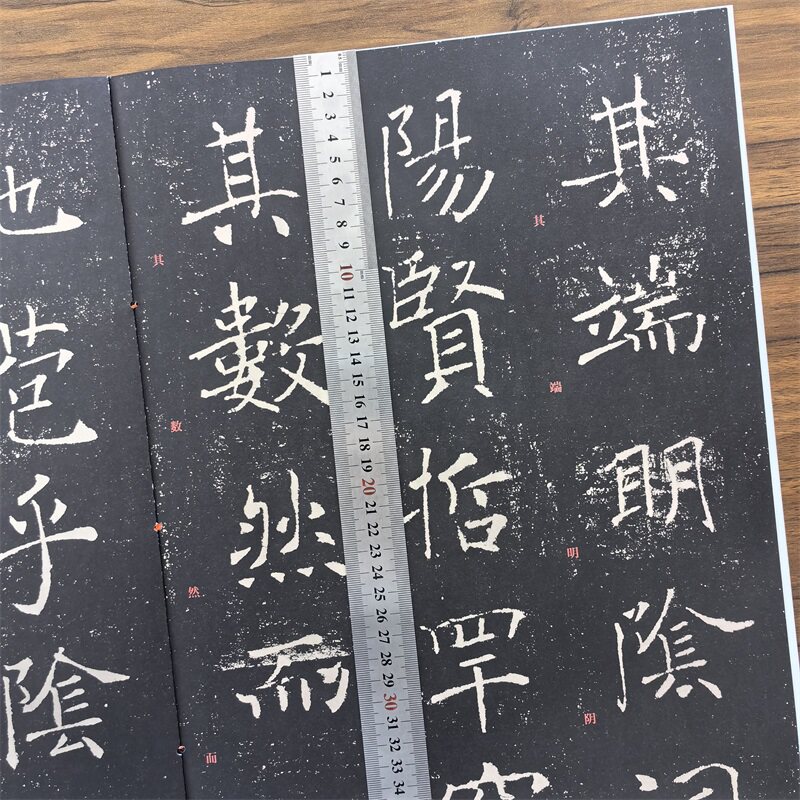 其端明陰
其
端
明
阴
陽賢哲罕
1 2 3 4 5 6 7 8 9 10 11 12 13 14 15 16 17 18 19 20 21 22 23 24 25 26 27 28 29 30 31 32 33 34
其數然而
其
數
然
而
苞乎陰